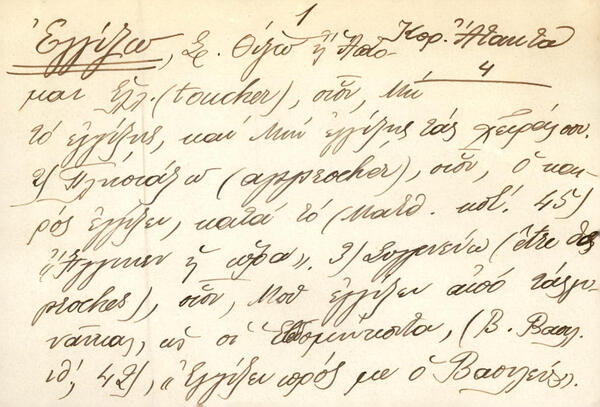 1
Ἐγγίζω, Σ. Θίγω ἢ Ἅπτο- Κορ. Ἄτακτα
4
μαι Γαλ. (toucher), οἷον, Μὴ
τὸ ἐγγίζῃς, καὶ Μὴ ἐγγίζῃς τὰς χεῖράς σου.
2) Πλησιάζω (approcher), οἷον, ὁ και-
ρὸς ἐγγίζει, κατὰ τὸ (Ματθ. κστ'. 45)
«Ἤγγικεν ἡ ὥρα». 3) Συγγενεύω (être des
proches), οἷον, Μοῦ ἐγγίζει ἀπὸ τὰς γυ-
ναῖκας, ὡς οἱ Ἑβδομήκοντα, (Β. Βασιλ.
ιθ', 42), «Ἐγγίζει πρός με ὁ Βασιλεύς».